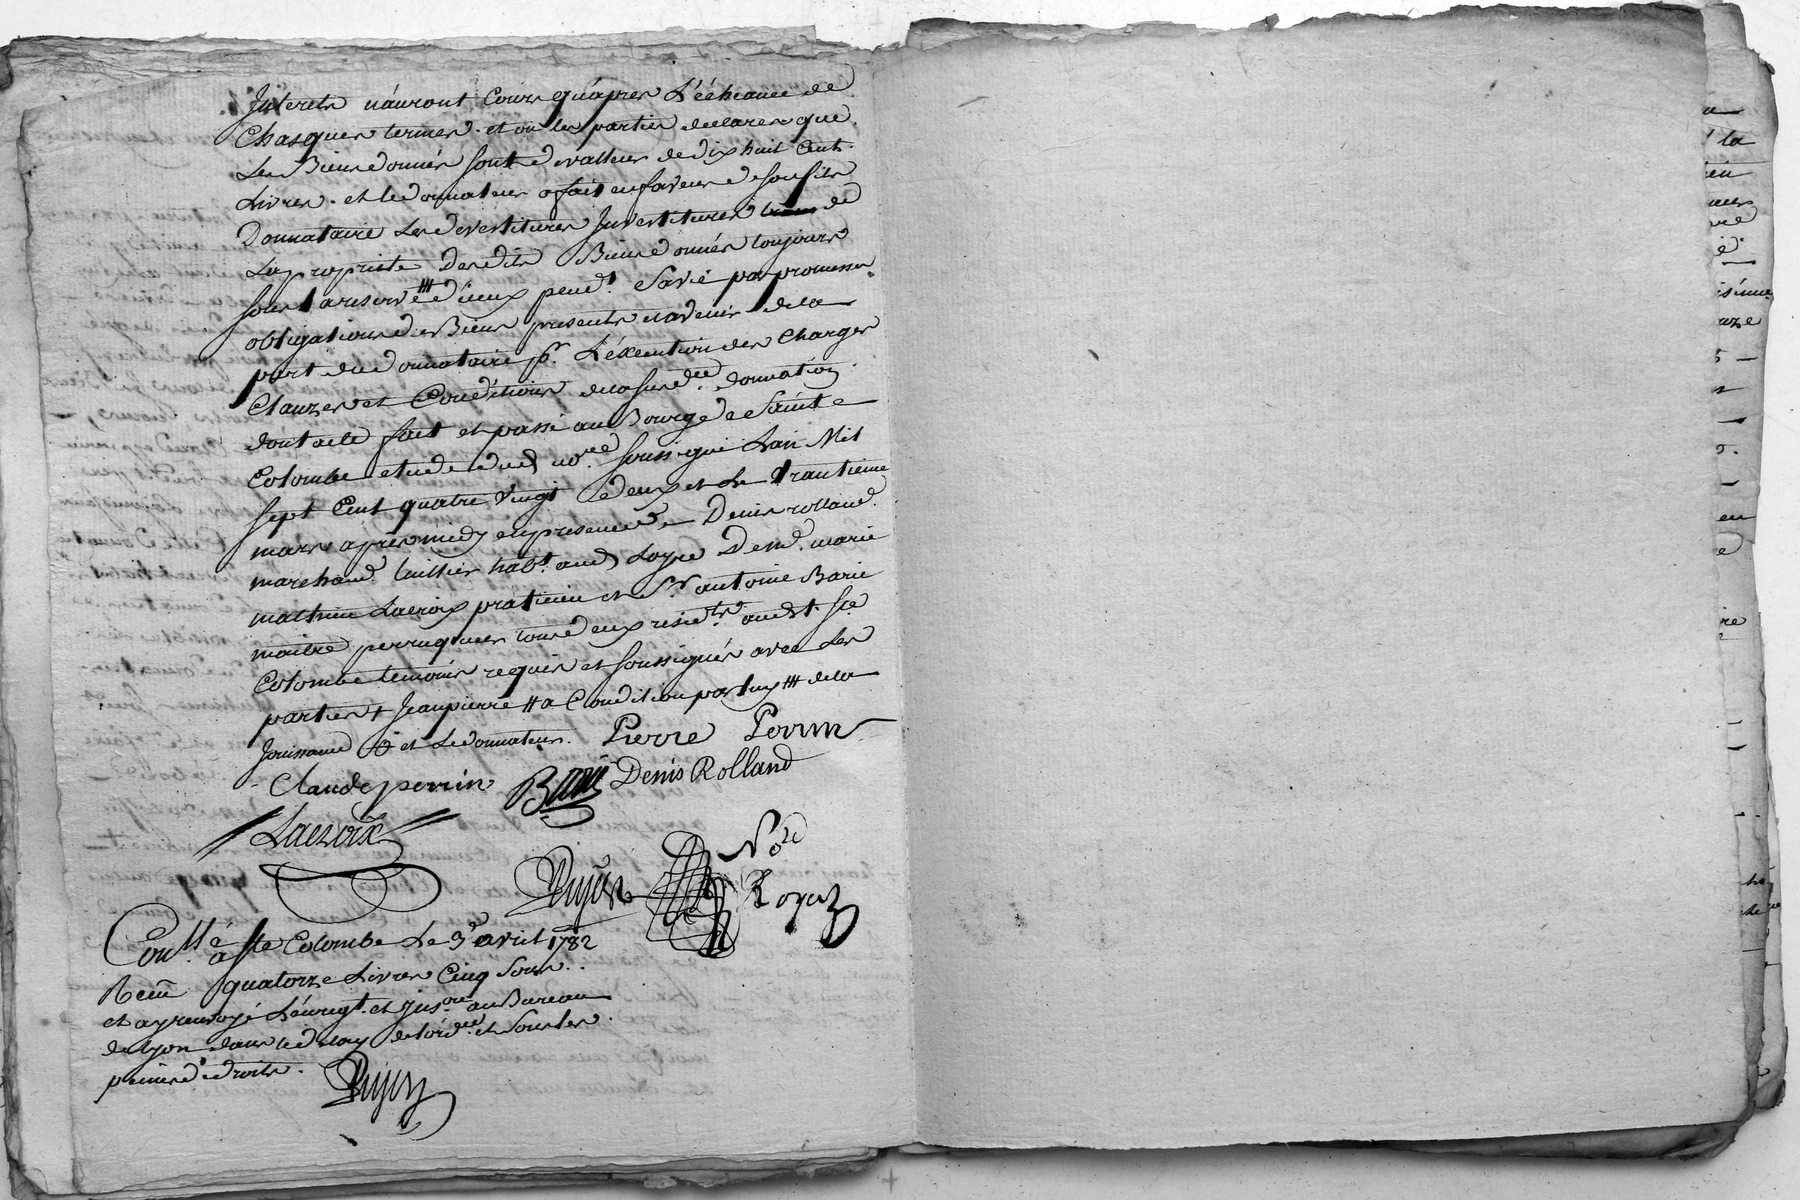 Interets nauront Cours quapres L'echeance de
Chasques termes. et ou les parties declares que
Les Biens donnés sont de valleur de dix huit Cent
Livres. et le donnateur a fait en faveur de son fils
Donnataire Les devestitures Investitures de
La propriete desdits Biens donnés toujours
sous la reserve ttt d'iceux pend.t sa vie par promesses
obligations de Biens presents et avenir de la
part du donnataire pr. L'exécution des Charges
Clauzes et Conditions de la susd.ee donnation
dont acte fait et passé au Bourg de Sainte
Colombe etude dud no.re soussigné Lan Mil
sept Cent quatre vingt deux et Le trantieme
mars après midy en presence de Denis rolland
marchand hab.t aud Loyre De md. marie
mathieu Lacroix praticien et Sr. antoine Barie
maître perruquier tous deux resid.ts audt. Ste
Colombe temoins requis et soussignés avec Les
parties + Jean pierre tt a Condition par luy ttt de la
Jouissance et Le donnateur. Pierre Perrin
Claude perrin Barie Denis Rolland
Lacroix
Dujon No.re
Royal
Con.llé à Ste Colombe Le 3e avril 1782
Recu quatorze Livres Cinq Sous
et ay renvoyé L'enregt. et Insi.on au Bureau
de Lyon dans le delay de lord.ce et sous les
peines de droits.
Dujon